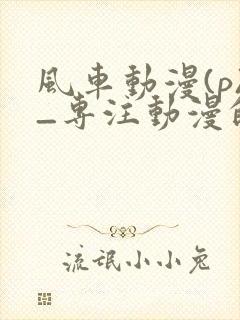 風車動漫(p
–專注動漫
流氓小小兔